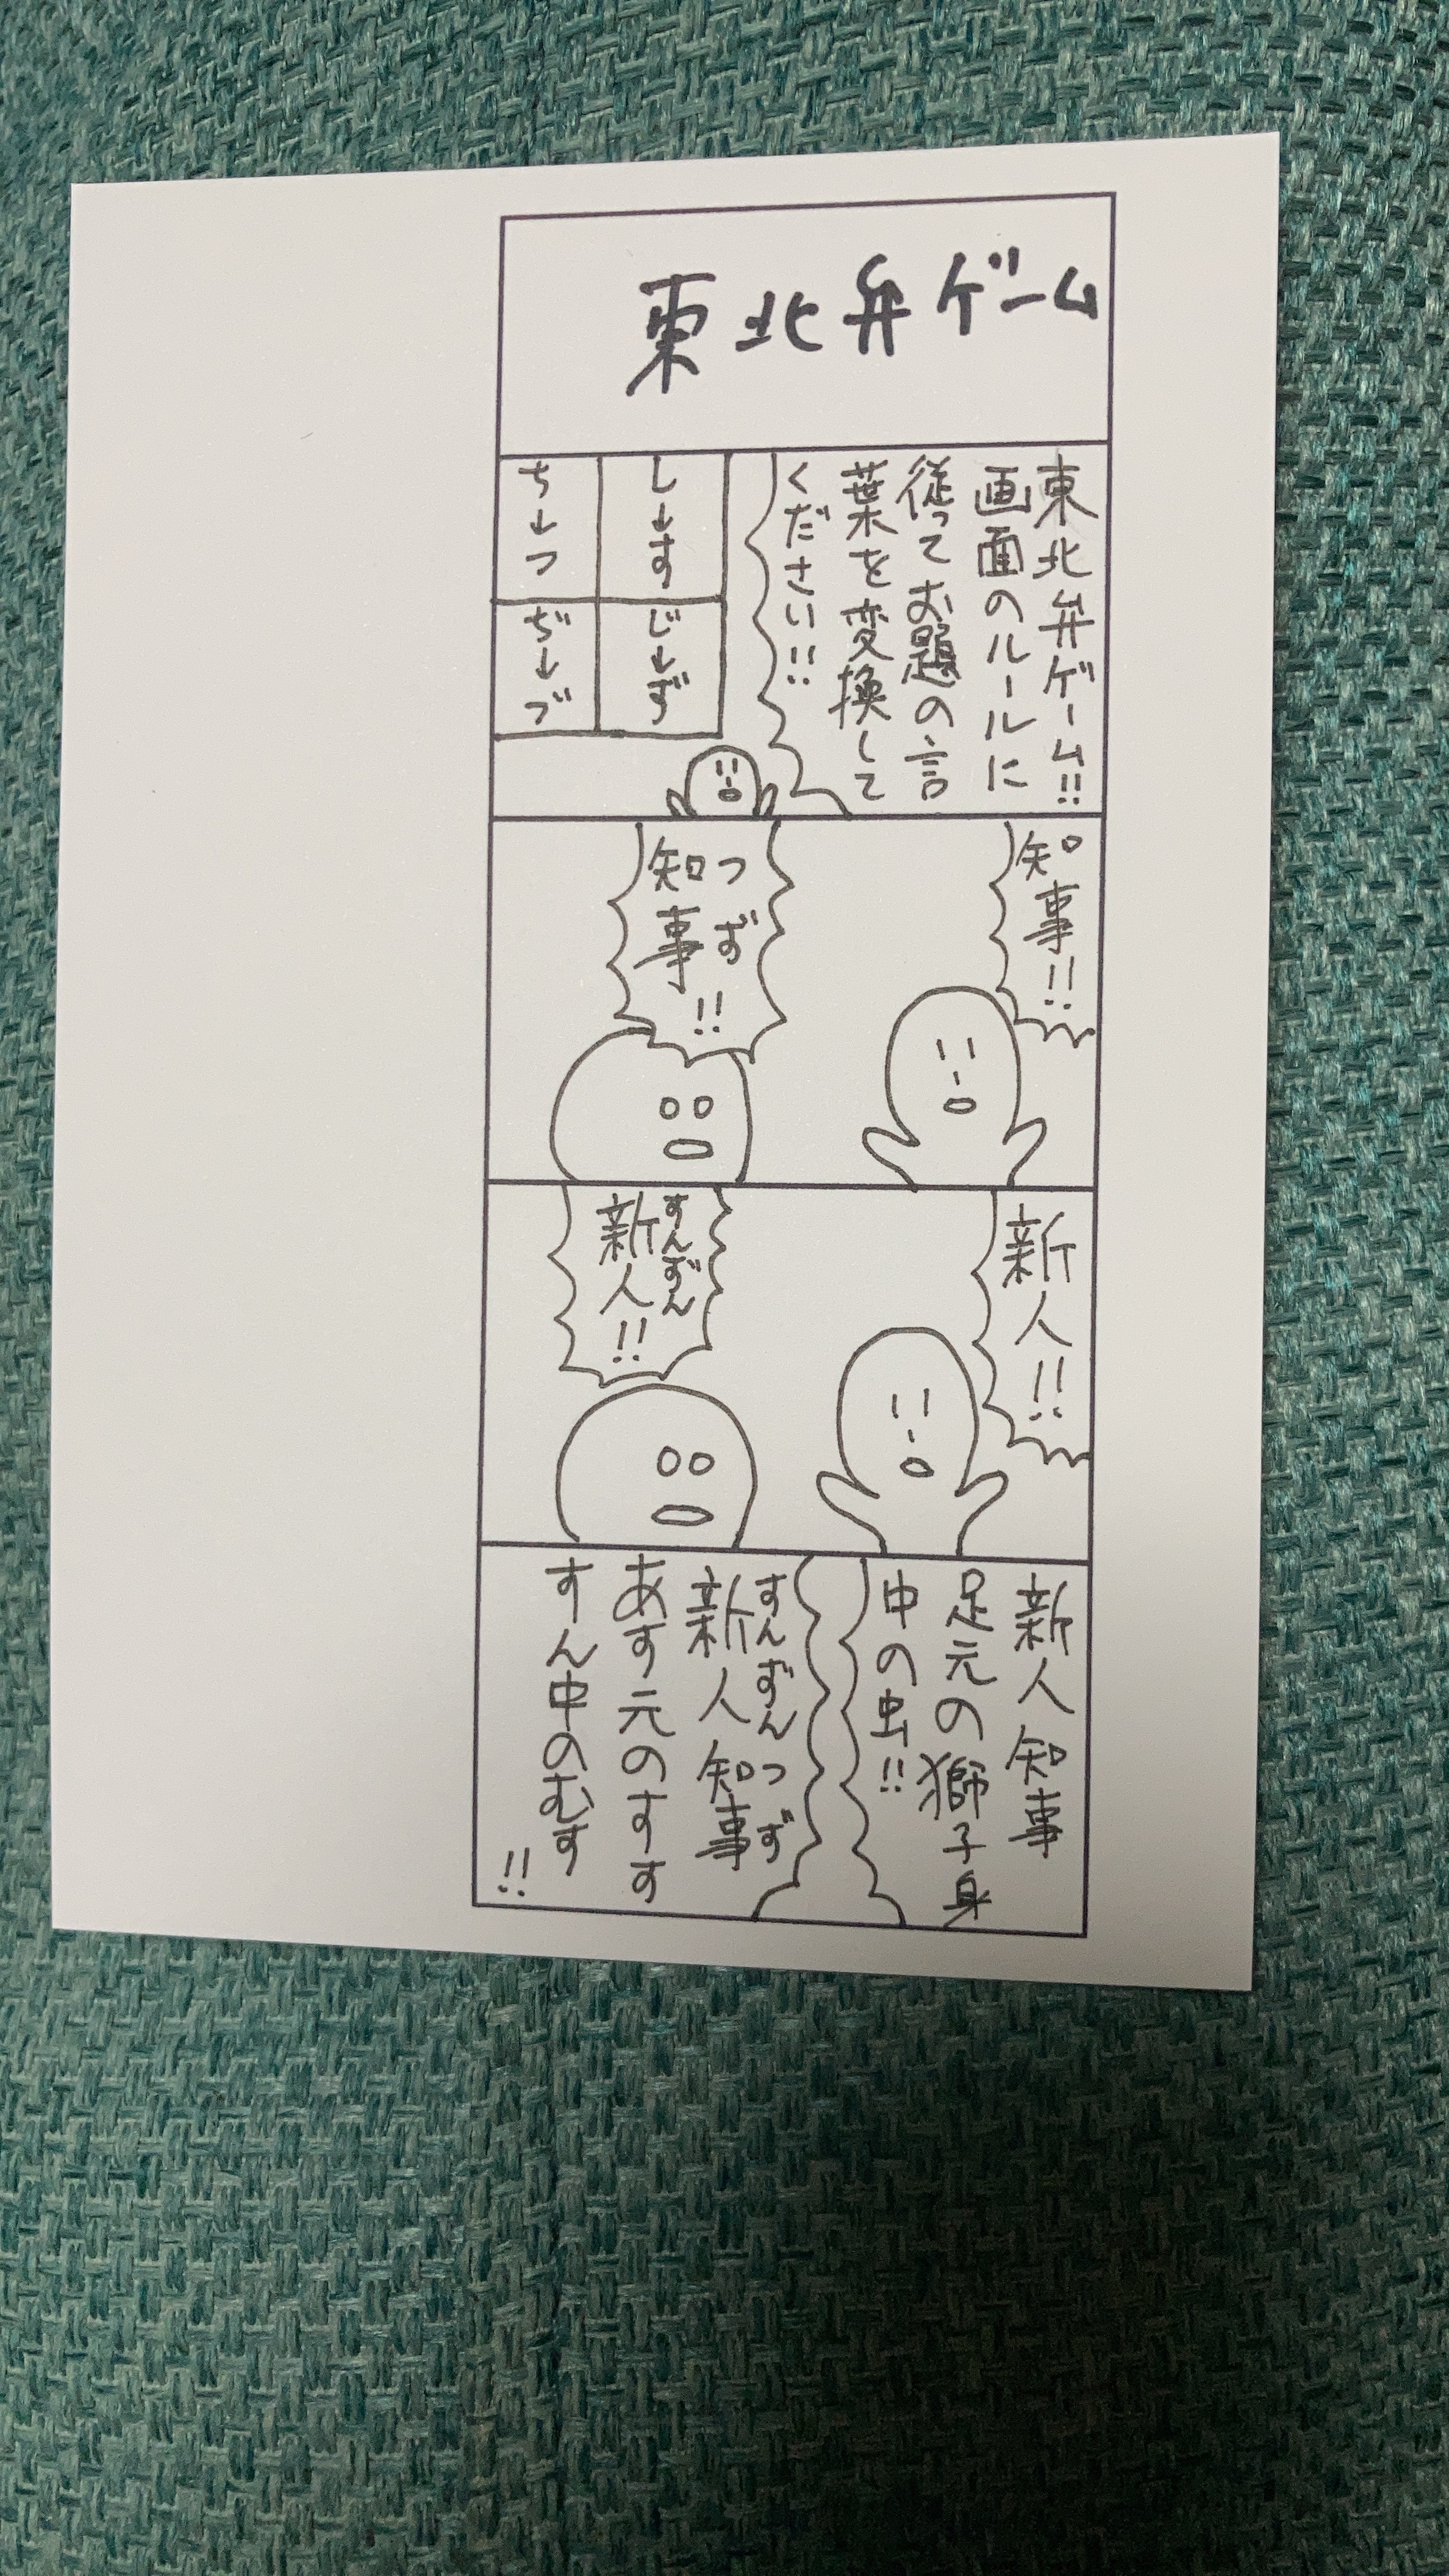 東北弁ゲーム
東北弁ゲーム!!
画面のルールに
従ってお題の言
葉を変換して
ください!!
し→す
じ→ず
ち→つ
ぢ→づ
知事!!
つず
知事!!
新人!!
すんずん
新人!!
新人知事
足元の獅子身
中の虫!!
すんずんつず
新人知事
あす元のすす
すん中のむす
!!